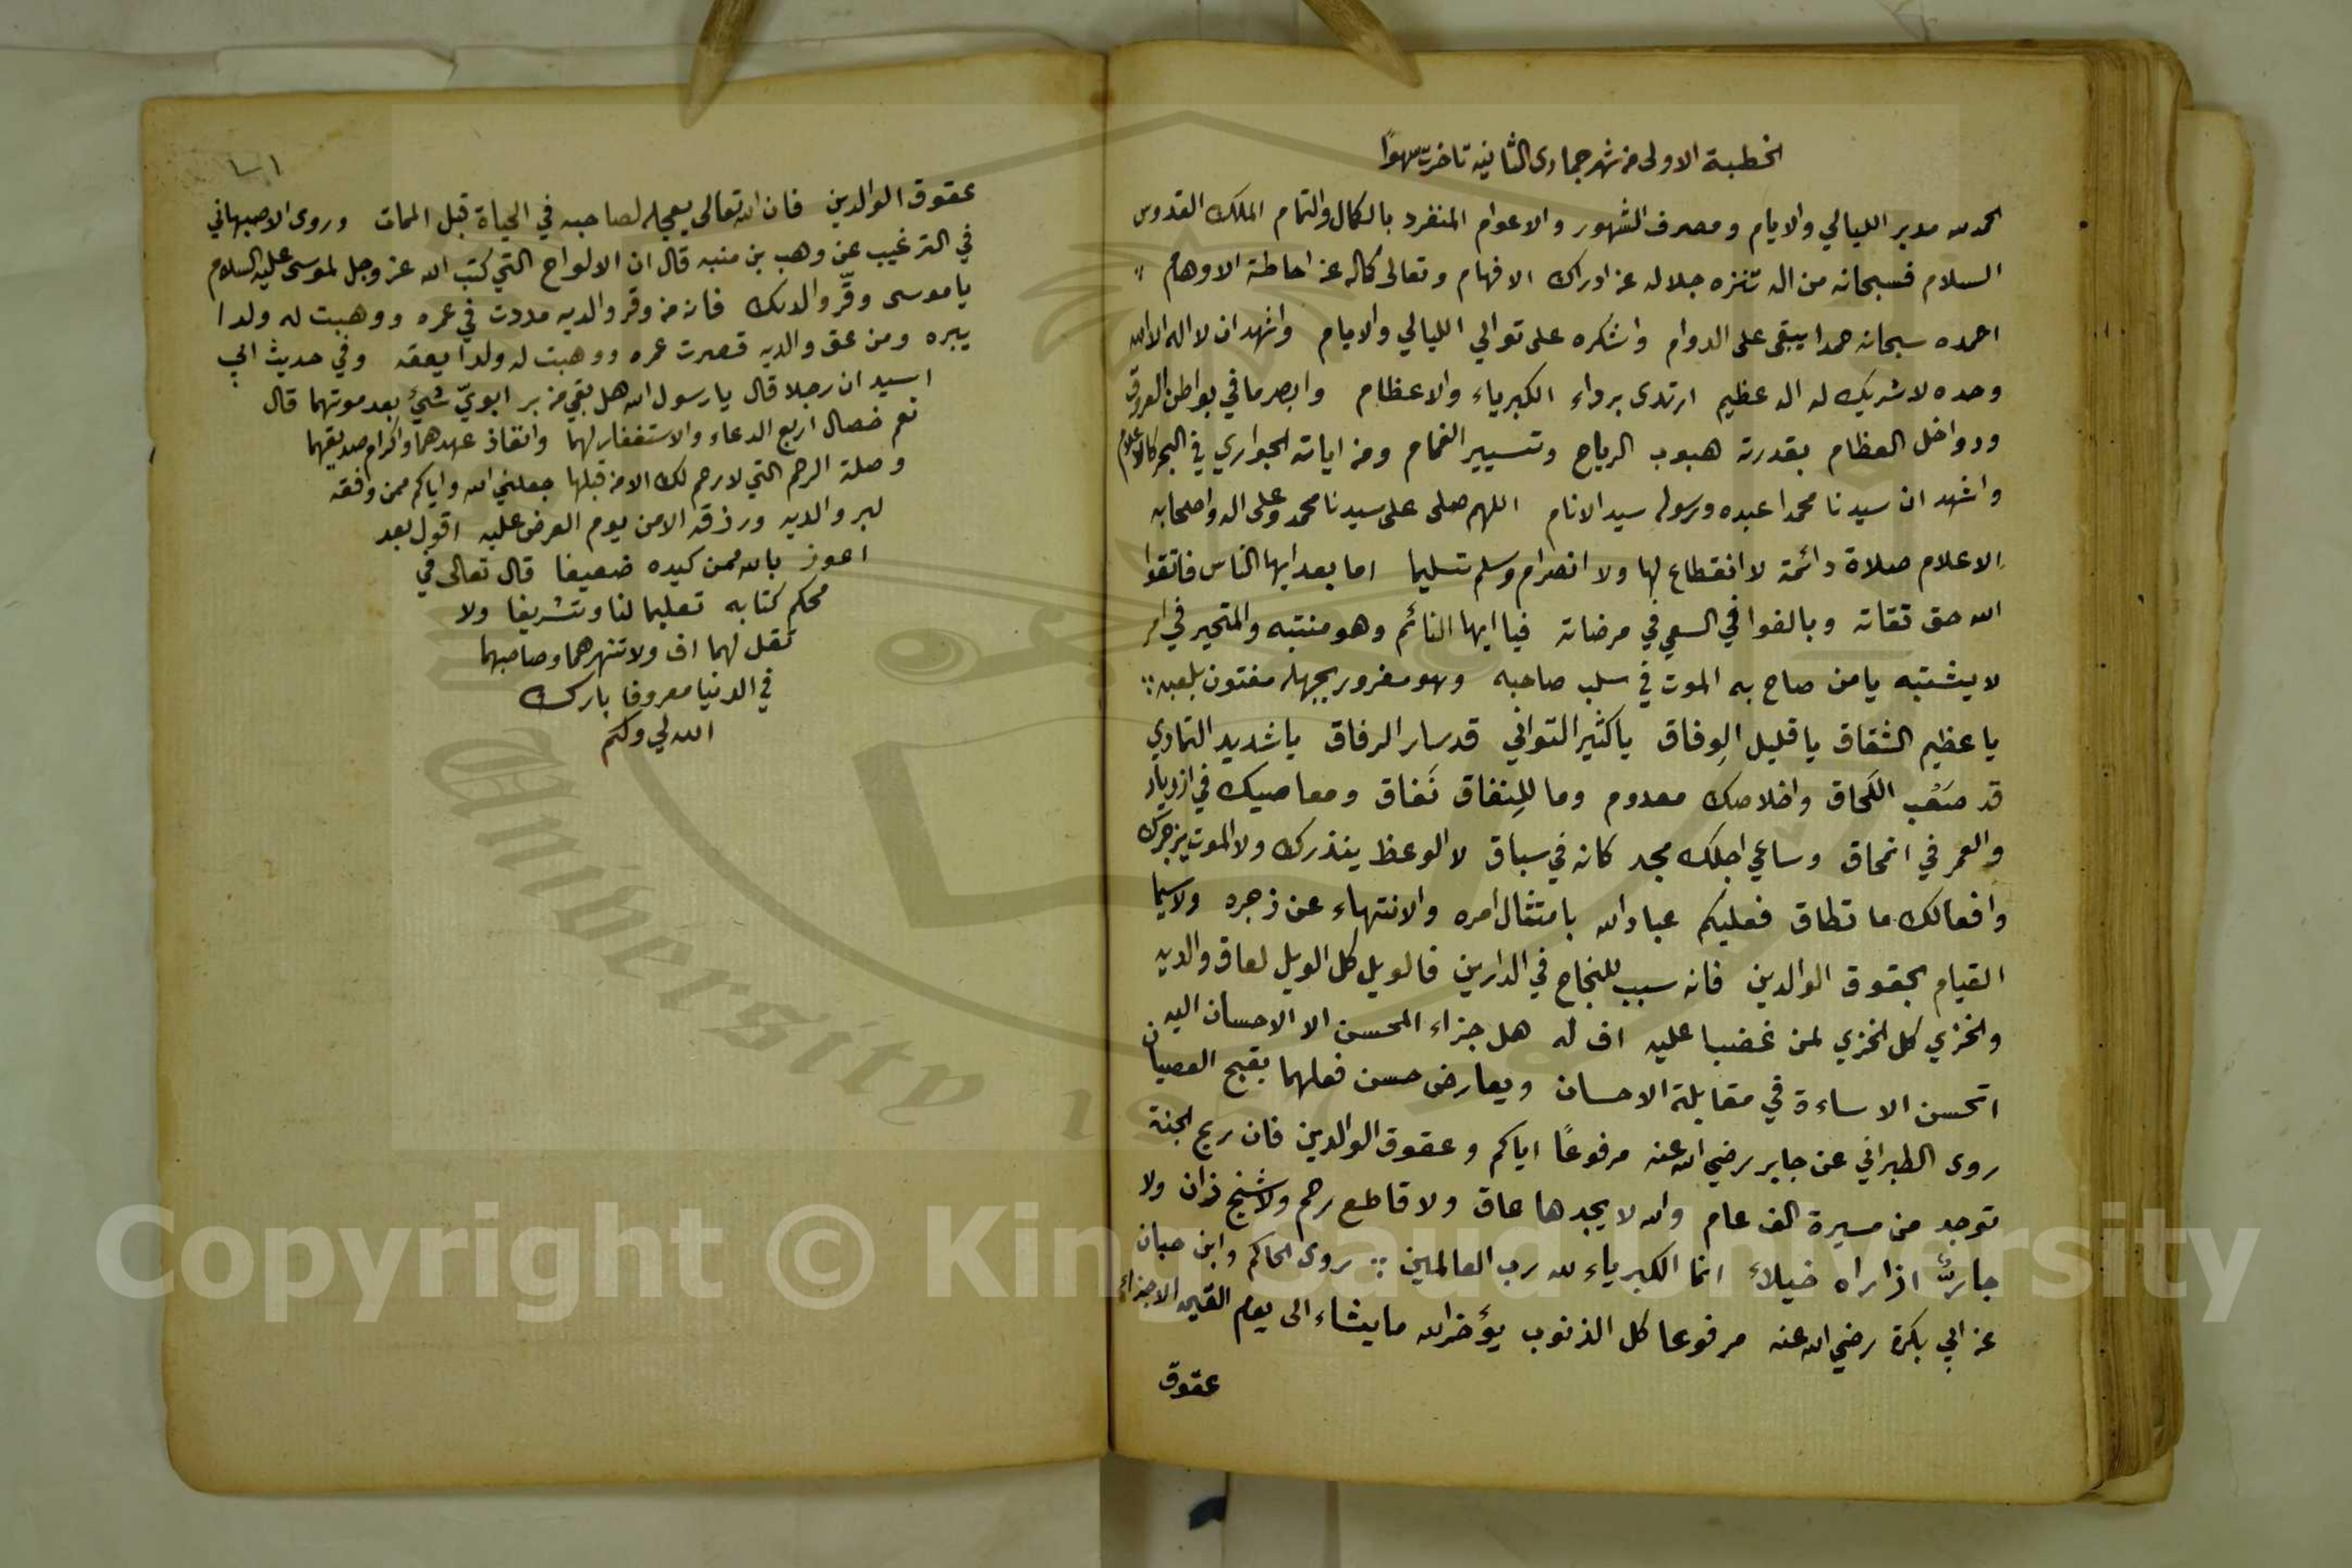 الخطبة الاولى من شهر جمادى الثانيه تاخرت سهوًا
الحمد لله مدبر الليالي والايام ومصرف الشهور والاعوام المنفرد بالكمال والتمام الملك القدوس
السلام فسبحانه من اله تنزه جلاله عن ادراك الافهام وتعالى كماله عن احاطة الاوهام
احمده سبحانه حمدا يبقى على الدوام واشكره على توالي الليالي والايام واشهد ان لا اله الا الله
وحده لا شريك له اله عظيم ارتدى برداء الكبرياء والاعظام وابصر ما في بواطن العروق
ودواخل العظام بقدرته هبوب الرياح وتسيير الغمام ومن اياته الجواري في البحر كالاعلام
واشهد ان سيدنا محمدا عبده ورسوله سيد الانام اللهم صلى على سيدنا محمد وعلى اله واصحابه
الاعلام صلاة دائمة لا انقطاع لها ولا انصرام وسلم تسليما اما بعد ايها الناس فاتقوا
الله حق تقاته وبالغوا في السعي في مرضاته فيا ايها النائم وهو منتبه والمتحير في امر
لا يشتبه يا من صاح به الموت في سلب صاحبه وهو مغرور بجهله مفتون بلعبه
يا عظيم الشقاق يا قليل الوِفاق يا كثير التواني قد سار الرفاق يا شديد التمادي
قد صَعُب اللَحاق واخلاصك معدوم وما للنِفاق نَفاق ومعاصيك في ازدياد
والعمر في انمحاق وساعي اجلك مجد كانه في سباق لا الوعظ ينذرك ولا الموت يزجرك
وافعالك ما تطاق فعليكم عباد الله بامتثال امره والانتهاء عن زجره ولاسيما
القيام بحقوق الوالدين فانه سبب للنجاح في الدارين فالويل كل الويل لعاق والديه
والخزي كل الخزي لمن غضبا عليه اف له هل جزاء المحسن الا الاحسان اليه
اتحسن الاساءة في مقابلة الاحسان ويعارض حسن فعلهما بقبح العصيان
روى الطبراني عن جابر رضي الله عنه مرفوعًا اياكم وعقوق الوالدين فان ريح الجنة
توجد من مسيرة الف عام والله لا يجدها عاق ولا قاطع رحم ولا شيخ زان ولا
جارٌّ ازاراه خيلاءً انما الكبرياء لله رب العالمين روى الحاكم وابن حبان
عن ابي بكرة رضي الله عنه مرفوعا كل الذنوب يؤخر الله ما يشاء الى يوم القيمه الا جزاء
عقوق
عقوق الوالدين فان الله تعالى يعجله لصاحبه في الحياة قبل الممات وروى الاصبهاني
في الترغيب عن وهب بن منبه قال ان الالواح التي كتب الله عز وجل لموسى عليه السلام
يا موسى وقّر والديك فانه من وقر والديه مددت في عمره ووهبت له ولدا
يبره ومن عق والديه قصرت عمره ووهبت له ولدا يعقه وفي حديث ابي
اسيد ان رجلا قال يا رسول الله هل بقي من بر ابويّ شيءٌ بعد موتهما قال
نعم خصال اربع الدعاء والاستغفار لهما وانفاذ عهدهما واكرام صديقهما
وصلة الرحم التي لا رحم لك الا من قبلها جعلني الله واياكم ممن وافقه
لبر والديه ورزقه الامن يوم العرض عليه اقول بعد
اعوذ بالله ممن كيده ضعيفا قال تعالى في
محكم كتابه تعليما لنا وتشريفا ولا
تقل لهما اف ولا تنهرهما وصاحبهما
في الدنيا معروفا بارك
الله لي ولكم
Copyright © King Saud University
University 1957